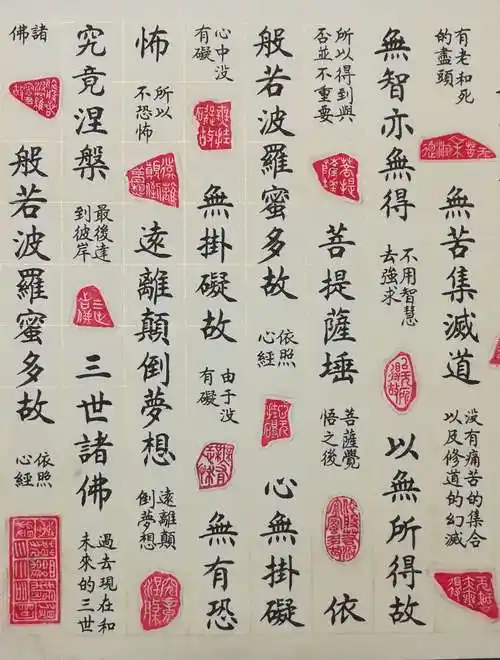 有老和死
的盡頭
無苦集滅道
没有痛苦的集合
以及修道的幻滅
無智亦無得
不用智慧
去強求
以無所得故
所以得到與
否並不重要
菩提薩埵
菩提薩埵
菩薩覺
悟之後
依
般若波羅蜜多故
依照
心經
心無掛礙
心中没
有礙
無掛礙故
由于没
有礙
無有恐
怖
所以
不恐怖
遠離顛倒夢想
遠離顛
倒夢想
究竟涅槃
最後達
到彼岸
三世諸佛
過去現在和
未來的三世
諸
佛
般若波羅蜜多故
依照
心經